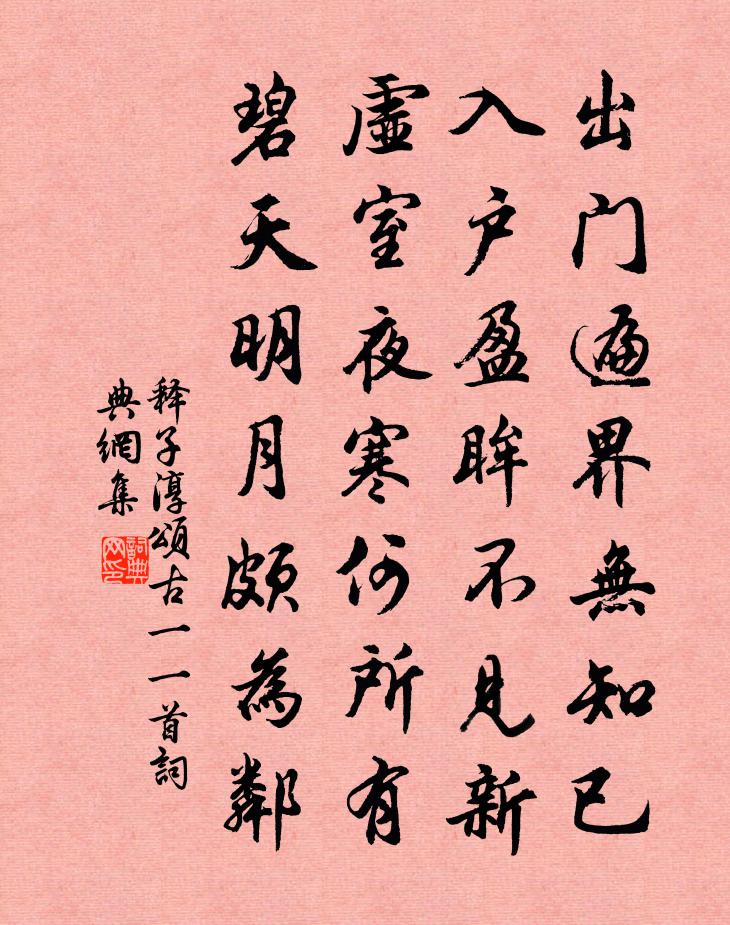 出門遍界無知已
入户盈眸不見新
虛室夜寒何所有
碧天明月頗為鄰
释子淳頌古一一首詞
典網集
詞典
网印